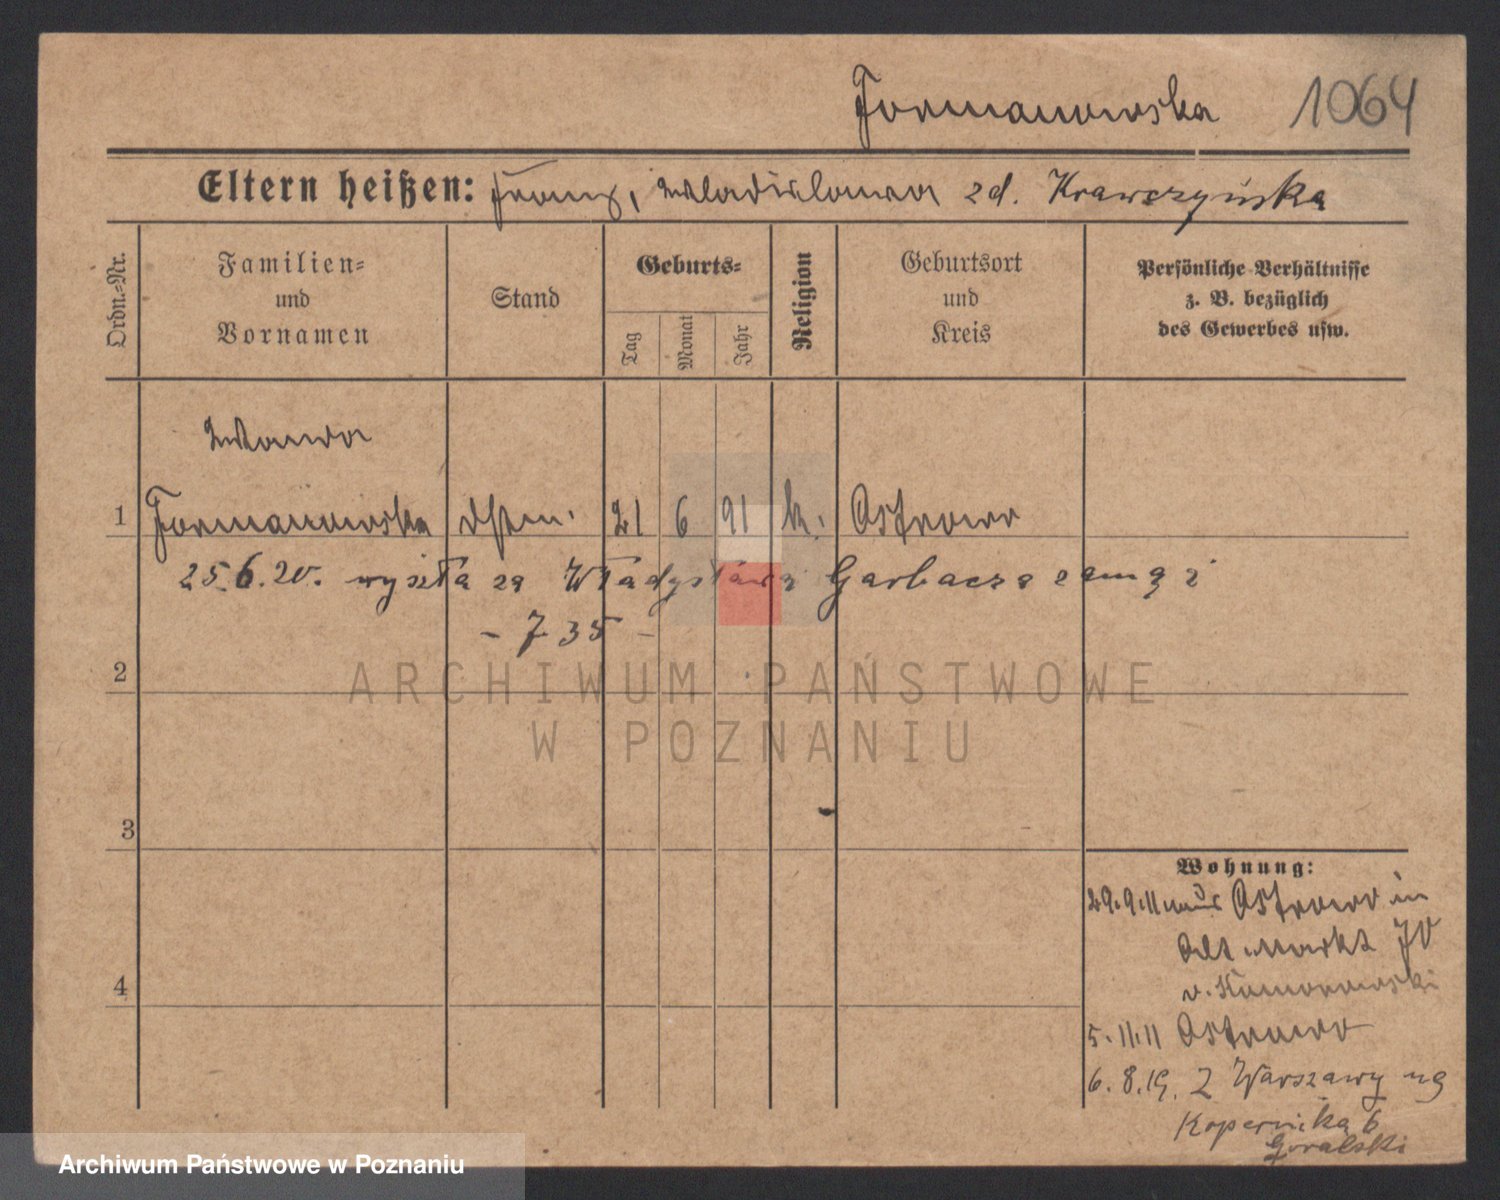 Formanowska 1064
Eltern heißen: Franz, Wladislawa zd. Krawczyńska
Ordn.-Nr.
Familien-
und
Vornamen
Stand
Geburts-
Tag
Monat
Jahr
Religion
Geburtsort
und
Kreis
Persönliche Verhältnisse
z. B. bezüglich
des Gewerbes usw.
Wanda
1 Formanowska 21 6 91 k. Ostrowo
25.6.20. wyszła za Władysława Garbacza zamąż
- 735 -
2
3
4
Wohnung:
29.9.11 aus Ostrowo in
Alt Markt 70
v. Komorowski
5.11.11 Ostrowo
6.8.19. Z Warszawy na
Kopernika 6
Goralski
ARCHIWUM PAŃSTWOWE
W POZNANIU
Archiwum Państwowe w Poznaniu